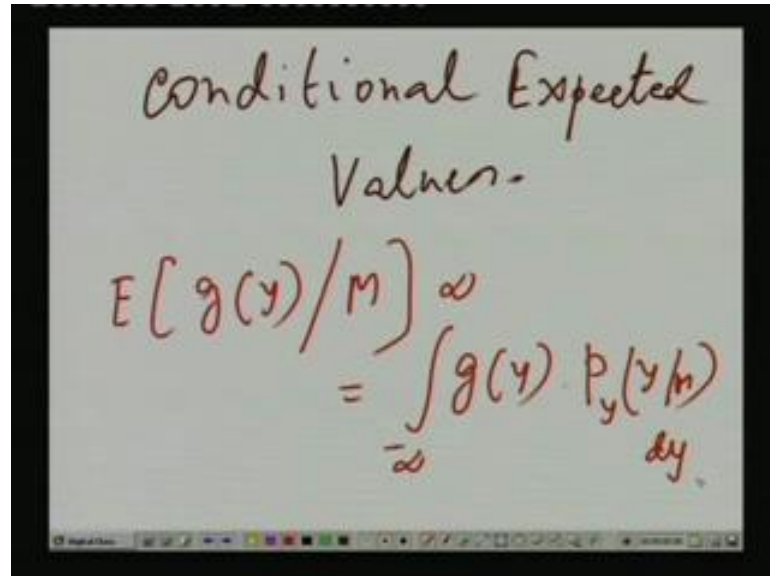 Conditional Expected
Values.
E[g(y)/M]
= ∫_{-∞}^{∞} g(y) . P_y(y/M)
dy